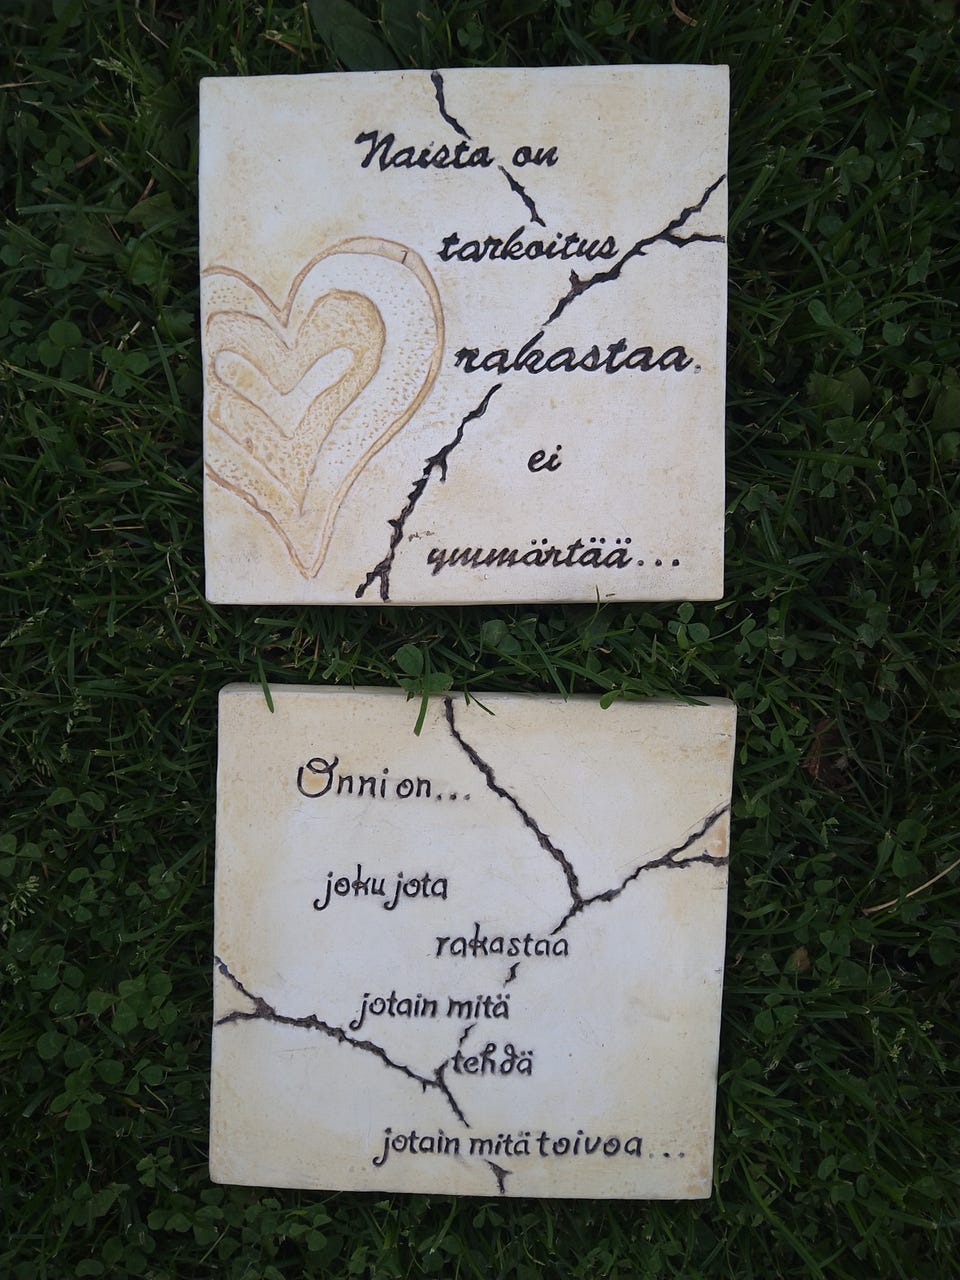 Naista on
tarkoitus
rakastaa,
ei
ymmärtää...
Onni on...
joku jota
rakastaa
jotain mitä
tehdä
jotain mitä toivoa...